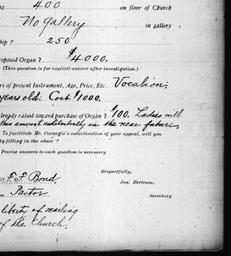 400 on floor of Church
No gallery in gallery
ship? 250
roposed Organ? $4000.
(This question is for explicit answer after investigation.)
rs of present Instrument, Age, Price, Etc. Vocalion,
years old. Cost $1000.
already raised toward purchase of Organ? $100. Ladies will
this amount substantially in the near future.
To facilitate Mr. Carnegie's consideration of your appeal, will you
by filling in the above?
Precise answers to each question is necessary.
Respectfully,
F. F. Bond Jas. Bertram,
Pastor Secretary
liberty of mailing
of the Church.